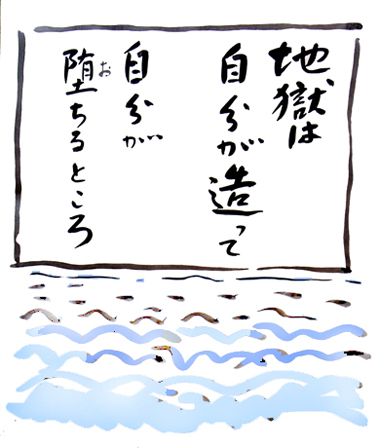 地獄は
自分が造って
自分が
堕ちるところ